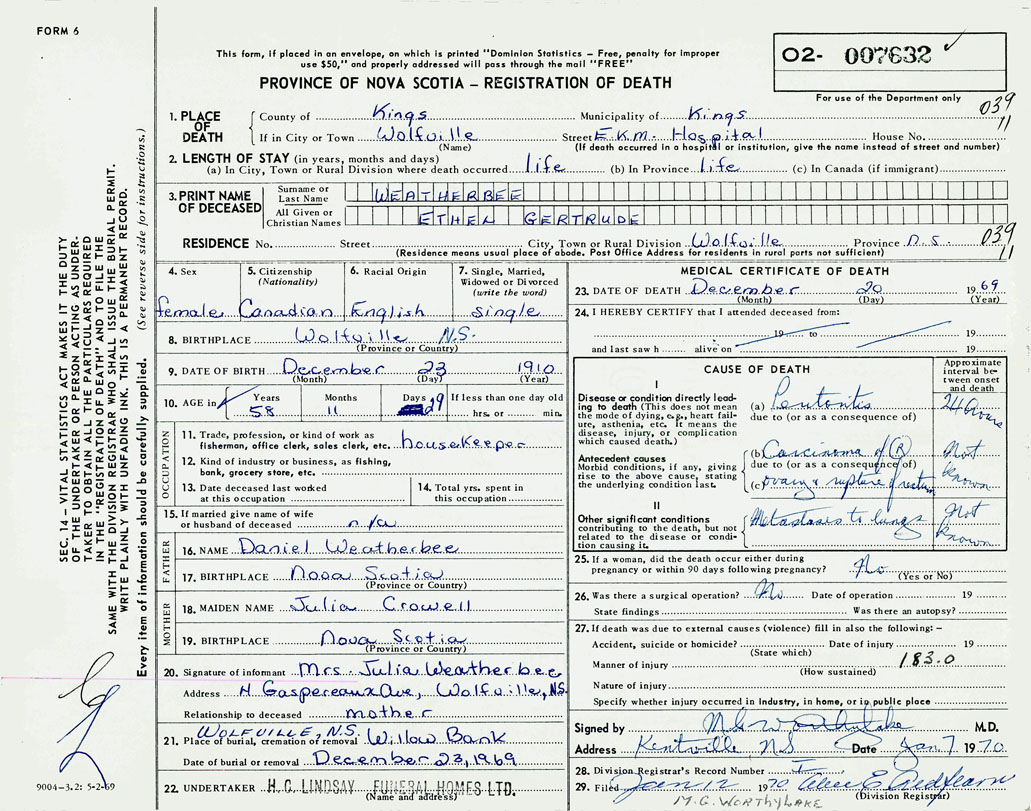 FORM 6
This form, if placed in an envelope, on which is printed "Dominion Statistics – Free, penalty for improper
use $50," and properly addressed will pass through the mail "FREE"
PROVINCE OF NOVA SCOTIA – REGISTRATION OF DEATH
02- 007632
For use of the Department only
039
11
1. PLACE OF DEATH
County of Kings Municipality of Kings
If in City or Town Wolfville Street E.K.M. Hospital House No.
(Name) (If death occurred in a hospital or institution, give the name instead of street and number)
2. LENGTH OF STAY (in years, months and days)
(a) In City, Town or Rural Division where death occurred life (b) In Province life (c) In Canada (if immigrant)
3. PRINT NAME OF DECEASED
Surname or Last Name WEATHERBEE
All Given or Christian Names ETHEN GERTRUDE
RESIDENCE No. Street City, Town or Rural Division Wolfville Province N.S.
(Residence means usual place of abode. Post Office Address for residents in rural parts not sufficient)
039
11
4. Sex
female
5. Citizenship
(Nationality)
Canadian
6. Racial Origin
English
7. Single, Married,
Widowed or Divorced
(write the word)
single
8. BIRTHPLACE Wolfville N.S.
(Province or Country)
9. DATE OF BIRTH December 23 1910
(Month) (Day) (Year)
10. AGE in Years Months Days If less than one day old
58 11 29 hrs. or min.
OCCUPATION
11. Trade, profession, or kind of work as
fisherman, office clerk, sales clerk, etc. housekeeper
12. Kind of industry or business, as fishing,
bank, grocery store, etc.
13. Date deceased last worked
at this occupation
14. Total yrs. spent in
this occupation
15. If married give name of wife
or husband of deceased n/a
FATHER
16. NAME Daniel Weatherbee
17. BIRTHPLACE Nova Scotia
(Province or Country)
MOTHER
18. MAIDEN NAME Julia Crowell
19. BIRTHPLACE Nova Scotia
(Province or Country)
20. Signature of informant Mrs. Julia Weatherbee
Address H Gaspereaux Ave, Wolfville, N.S.
Relationship to deceased mother
WOLFVILLE, N.S.
21. Place of burial, cremation or removal Willow Bank
Date of burial or removal December 23, 1969
22. UNDERTAKER H. C. LINDSAY FUNERAL HOMES LTD.
(Name and address)
MEDICAL CERTIFICATE OF DEATH
23. DATE OF DEATH December 20 1969
(Month) (Day) (Year)
24. I HEREBY CERTIFY that I attended deceased from:
19 to 19
and last saw h alive on 19
CAUSE OF DEATH
Approximate
interval be-
tween onset
and death
I
Disease or condition directly lead-
ing to death (This does not mean
the mode of dying, e.g., heart fail-
ure, asthenia, etc. It means the
disease, injury, or complication
which caused death.)
(a) Peritonitis 24 hours
due to (or as a consequence of)
Antecedent causes
Morbid conditions, if any, giving
rise to the above cause, stating
the underlying condition last.
(b) Carcinoma of (R) Not known
due to (or as a consequence of)
(c) ovary & rupture of rectum
II
Other significant conditions
contributing to the death, but not
related to the disease or condi-
tion causing it.
Metastases to lungs Not known
25. If a woman, did the death occur either during
pregnancy or within 90 days following pregnancy? No
(Yes or No)
26. Was there a surgical operation? No Date of operation 19
State findings Was there an autopsy?
27. If death was due to external causes (violence) fill in also the following: –
Accident, suicide or homicide? Date of injury 19
(State which)
Manner of injury 183.0
(How sustained)
Nature of injury
Specify whether injury occurred in industry, in home, or in public place
Signed by M G Worthylake M.D.
Address Kentville NS Date Jan 7 1970
28. Division Registrar's Record Number 1
29. Filed Jan 12 1970
(Division Registrar)
M.G. WORTHYLAKE
SEC. 14 – VITAL STATISTICS ACT MAKES IT THE DUTY
OF THE UNDERTAKER OR PERSON ACTING AS UNDER-
TAKER TO OBTAIN ALL THE PARTICULARS REQUIRED
IN THE "REGISTRATION OF DEATH" AND TO FILE THE
SAME WITH THE DIVISION REGISTRAR WHO SHALL ISSUE THE BURIAL PERMIT.
WRITE PLAINLY WITH UNFADING INK. THIS IS A PERMANENT RECORD.
Every item of information should be carefully supplied. (See reverse side for instructions.)
9004-3.2: 5-2-69